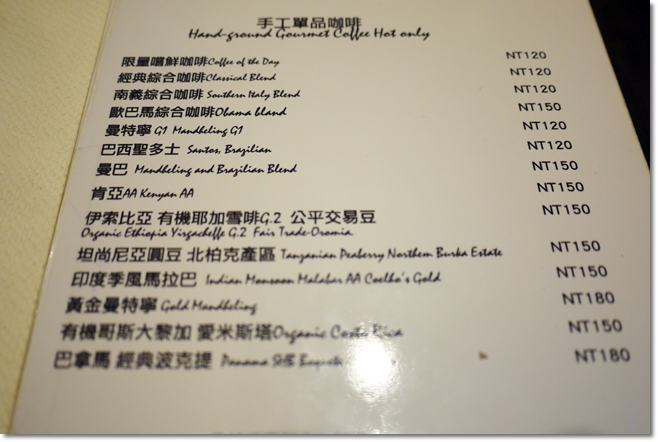 手工單品咖啡
Hand-ground Gourmet Coffee Hot only
限量嚐鮮咖啡Coffee of the Day NT120
經典綜合咖啡Classical Blend NT120
南義綜合咖啡 Southern Italy Blend NT120
歐巴馬綜合咖啡Obama bland NT150
曼特寧 G1 Mandheling G1 NT120
巴西聖多士 Santos, Brazilian NT120
曼巴 Mandheling and Brazilian Blend NT150
肯亞AA Kenyan AA NT150
伊索比亞 有機耶加雪啡G.2 公平交易豆 NT150
Organic Ethiopia Yirgacheffe G.2 Fair Trade-Oromia
坦尚尼亞圓豆 北柏克產區 Tanzanian Peaberry Northern Burka Estate NT150
印度季風馬拉巴 Indian Monsoon Malabar AA Coelho's Gold NT150
黃金曼特寧 Gold Mandheling NT180
有機哥斯大黎加 愛米斯塔Organic Costa Rica NT150
巴拿馬 經典波克提 Panama NT180